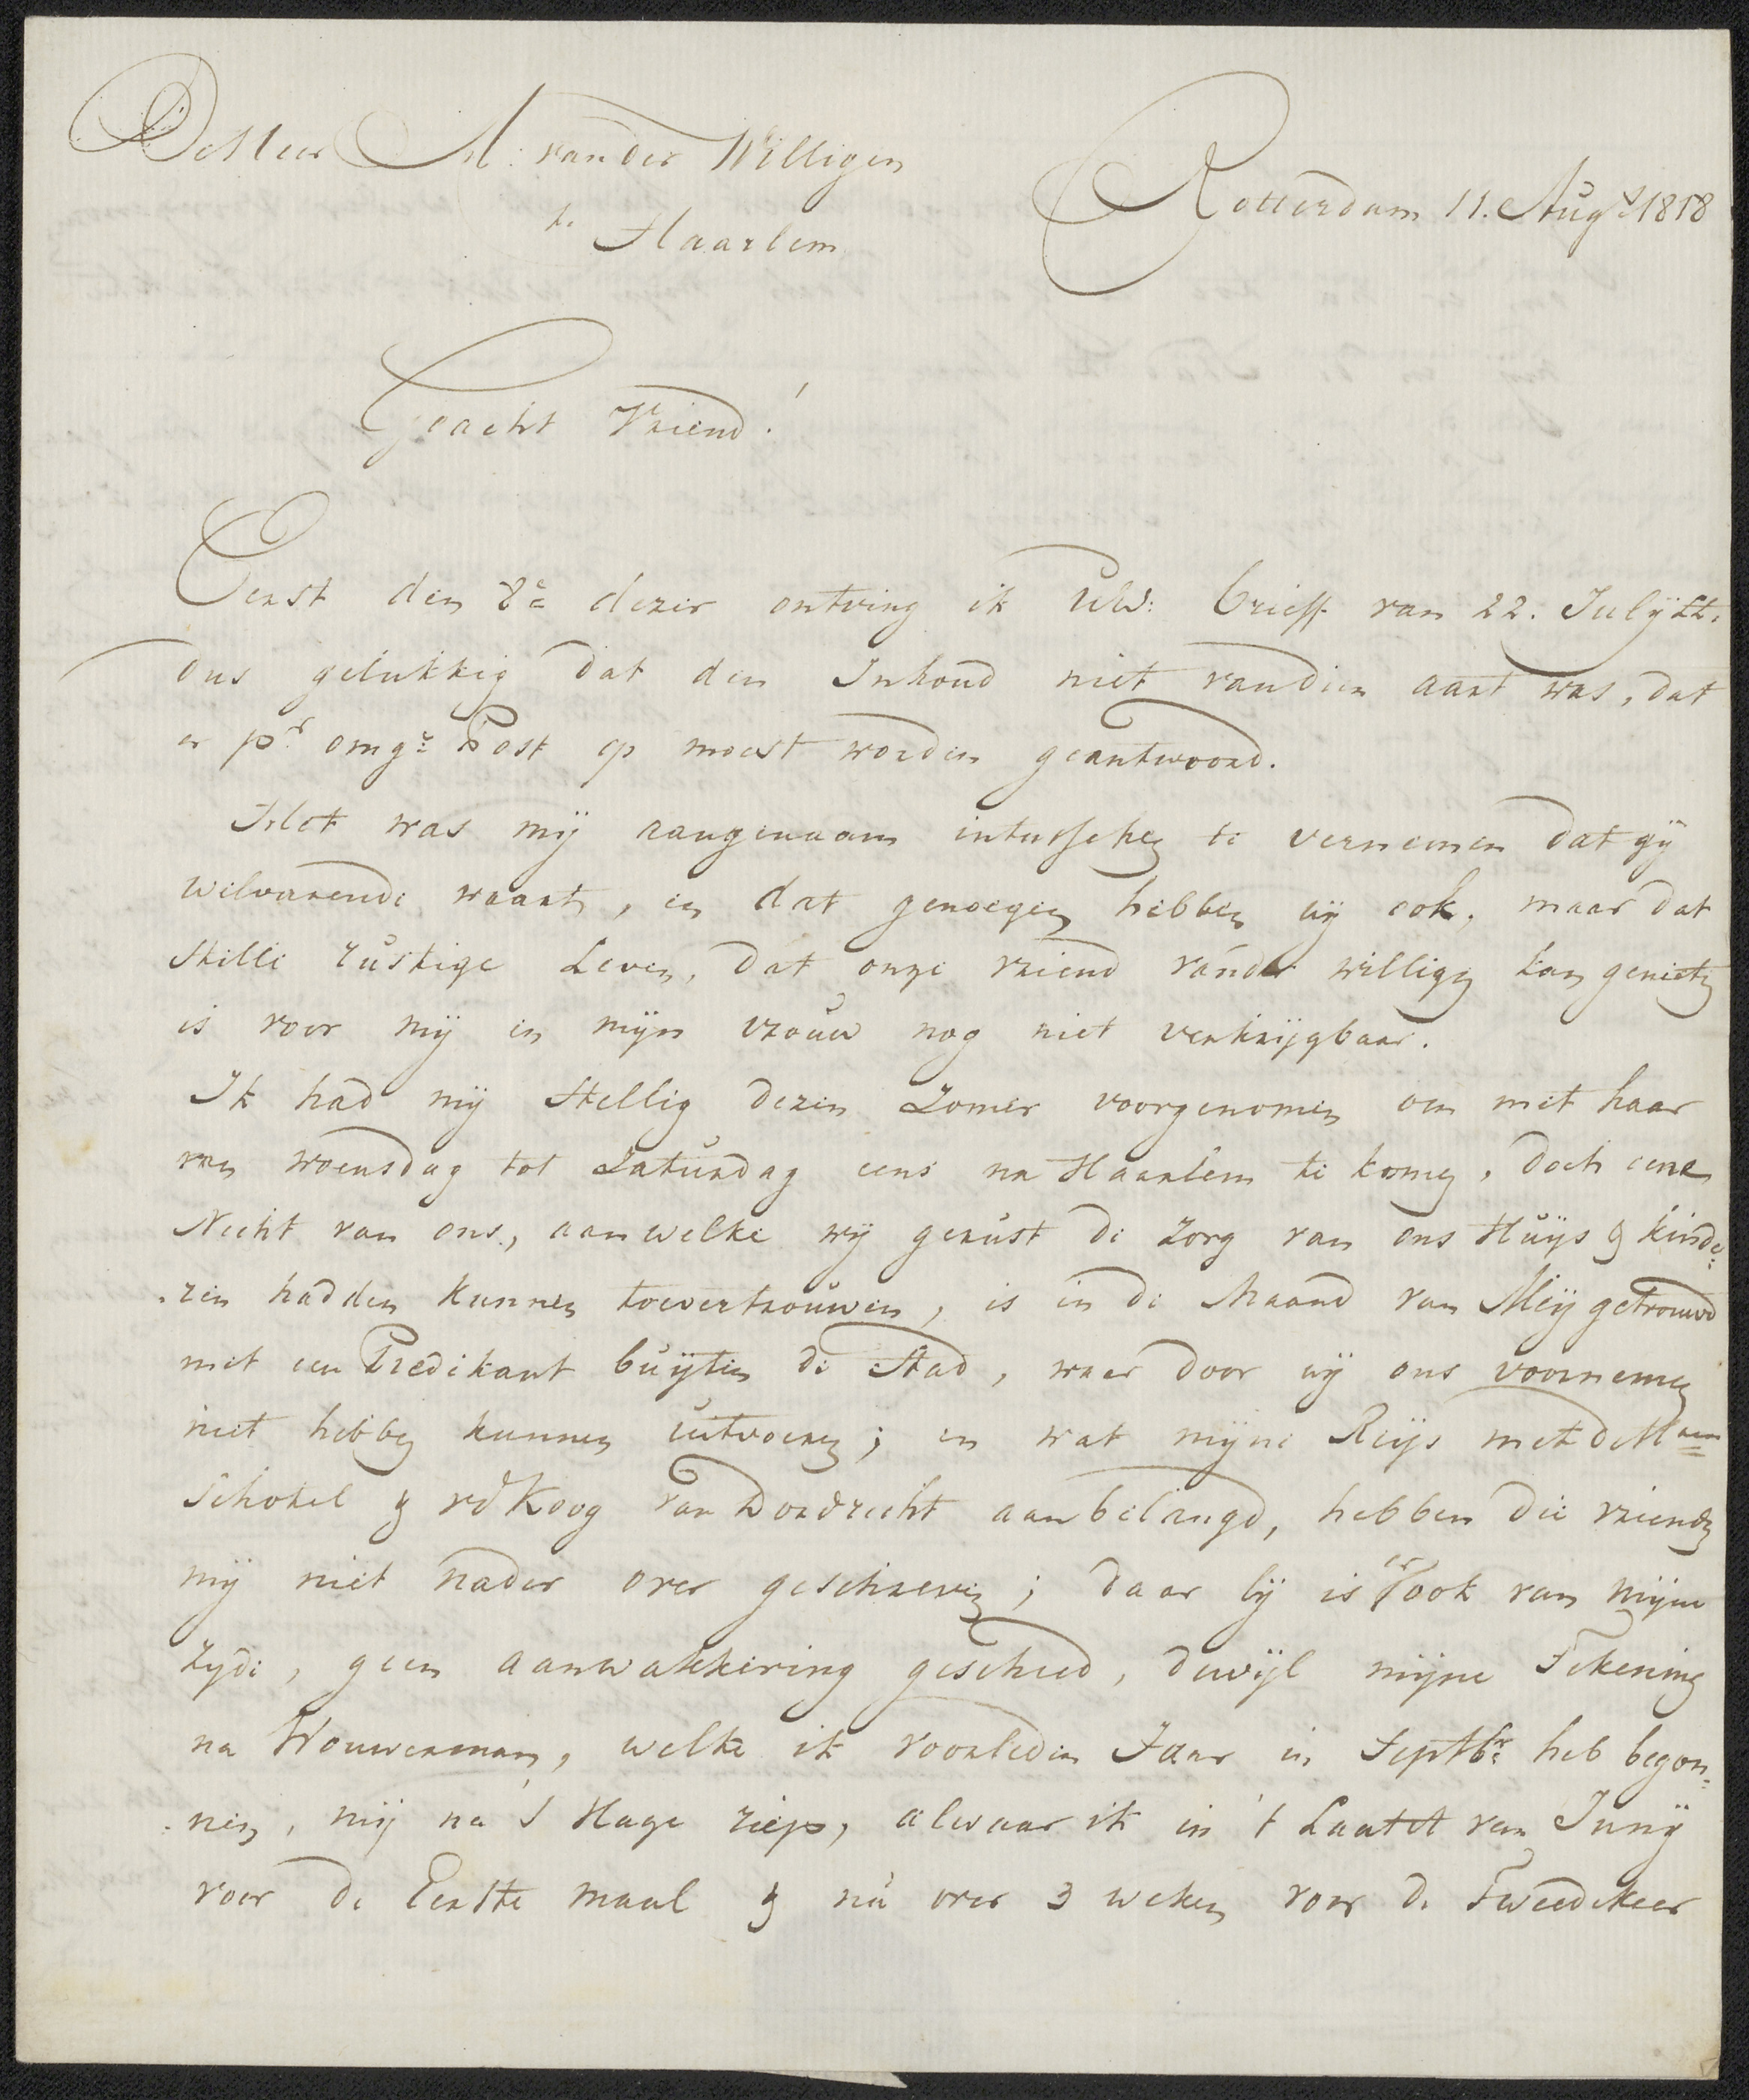 De Heer A: van der Willigen
te Haarlem
Rotterdam 11. Augs 1818
Geacht Vriend!
Eerst den 8e dezer ontving ik UW: brieff van 22. Julij ll.
dus gelukkig dat den Inhoud niet van dien aart was, dat
er pr omgr Post op moest worden geantwoord.
Het was mij aangenaam intusschen te vernemen dat gij
welvarende waart, en dat genoegen hebben wij ook, maar dat
stille rustige Leven, dat onze vriend vander willigen kan genieten
is voor mij en mijn vrouw nog niet verkrijgbaar.
Ik had mij stellig dezen Zomer voorgenomen om met haar
van woensdag tot Saturdag eens na Haarlem te komen, doch eene
Necht van ons, aan welke wij gerust de zorg van ons Huijs en kinde=
=ren hadden kunnen toevertrouwen, is in de Maand van Meij getrouwd
met een Predikant buijten de Stad, waar door wij ons voornemen
niet hebben kunnen uitvoeren; en wat mijne Reijs met de Hren
Schotel en vd Koog van Dordrecht aanbelangd, hebben die vrienden
mij niet nader over geschreven; daar bij is er ook van mijne
zijde, geen aanwakkering geschied, dewijl mijne Tekening
na Wouwerman, welke ik voorleden Jaar in Septbr heb begon=
=nen, mij na s Hage riep, alwaar ik in 't Laatst van Junij
voor de Eerste maal en nu over 3 weken voor de Tweede keer